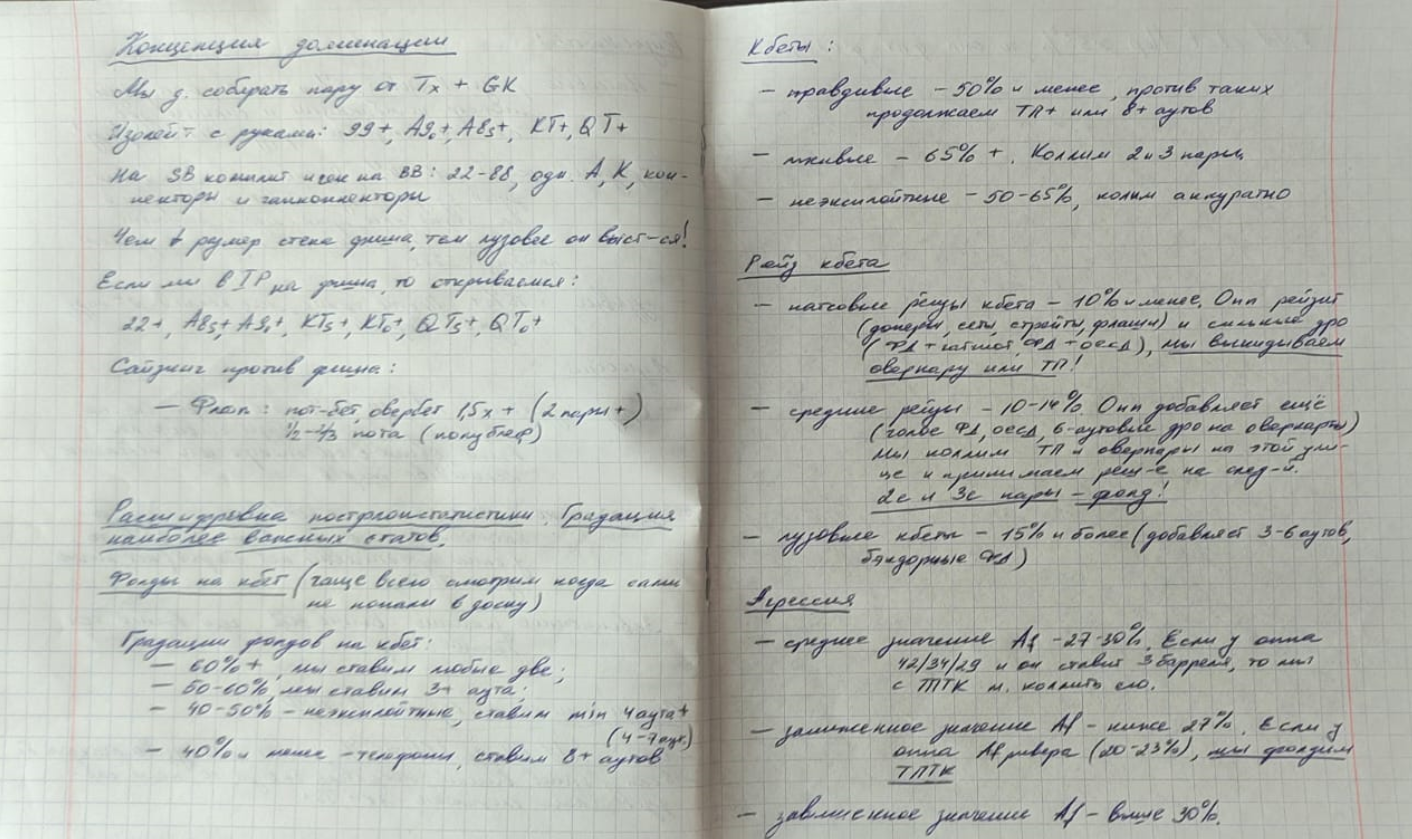 Концепция доминации
Мы д. собирать пару от Tx + GK
Изолейт с руками: 99+, A9o+, A8s+, KT+, QT+
На SB комплит и чек на BB: 22-88, одн. A, K, кон-
некторы и гапконнекторы
Чем ↑ размер стека фиша, тем лузовее он выст-ся!
Если мы в IP на фиша, то открываемся:
22+, A8s+, A9o+, KTs+, KTo+, QTs+, QTo+
Сайзинг против фиша:
— Флоп: пот-бет, овербет 1,5x + (2 пары+)
1/2-2/3 пота (полублеф)
Расшифровка постфлопстатистики. Градация
наиболее важных статов.
Фолды на кбет (чаще всего смотрим когда сами
не попали в доску)
Градации фолдов на кбет:
— 60%+, мы ставим любые две;
— 50-60%, мы ставим 3+ аута;
— 40-50% - неэксплойтные, ставим min 4 аута+
(4-7 аут.)
— 40% и менее - телефоны, ставим 8+ аутов
Кбеты:
— правдивые - 50% и менее, против таких
продолжаем ТП+ или 8+ аутов
— лживые - 65%+. Коллим 2 и 3 пары
— неэксплойтные - 50-65%, колим аккуратно
Рейз кбета
— натсовые рейзы кбета - 10% и менее. Опп рейзит
(доперы, сеты, стрейты, флаши) и сильные дро
(ФД + гатшот, ФД + оесд), мы выкидываем
оверпару или ТП!
— средние рейзы - 10-14%. Опп добавляет ещё
(голое ФД, оесд, 6-аутовые дро на оверкарты)
Мы коллим ТП и оверпары на этой ули-
це и принимаем реш-е на след-й.
2е и 3е пары - фолд!
— лузовые кбеты - 15% и более (добавляет 3-6 аутов,
бэкдорные ФД)
Агрессия
— среднее значение Af - 27-30%. Если у оппа
42/34/29 и он ставит 3 барреля, то мы
с ТПТК м. коллить его.
— заниженное значение Af - ниже 27%. Если у
оппа Af ривера (20-23%), мы фолдим
ТПТК
— завышенное значение Af - выше 30%.